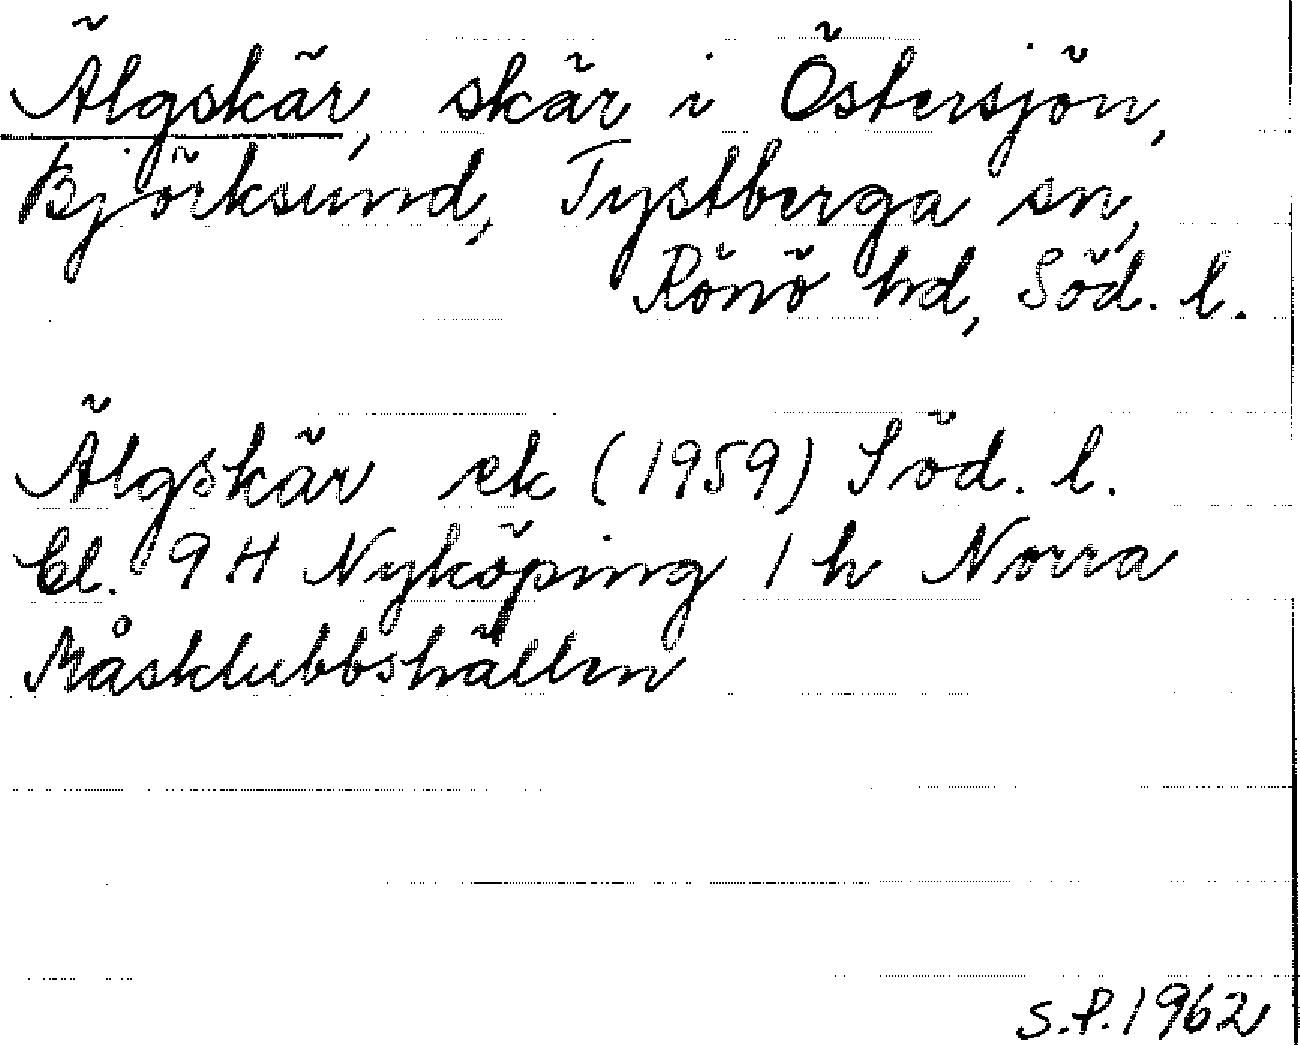 Älgskär, skär i Östersjön,
Björksund, Tystberga sn,
Rönö hd, Söd. l.
Älgskär ek (1959) Söd. l.
bl. 9 H Nyköping 1 h Norra
Måsklubbshällen
S.P. 1962